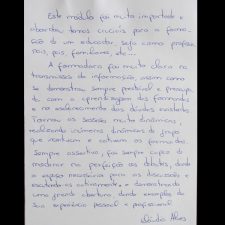 Este módulo foi muito importante e
abordou temas cruciais para a forma-
ção de um educador, seja como profes-
sor, pais, familiares, etc...
A formadora foi muito clara na
transmissão de informação, assim como
se demonstrou sempre prestável e preocupa-
da com a aprendizagem dos formandos
e no esclarecimento das dúvidas existentes.
Tornou as sessões muito dinâmicas,
realizando inúmeras dinâmicas de grupo
que motivam e cativam os formandos.
Sempre assertiva, foi sempre capaz de
moderar na perfeição os debates, dando
o espaço necessário para as discussões e
escutando-os activamente e demonstrando
uma grande abertura, dando exemplos da
sua experiência pessoal e profissional.
Alves